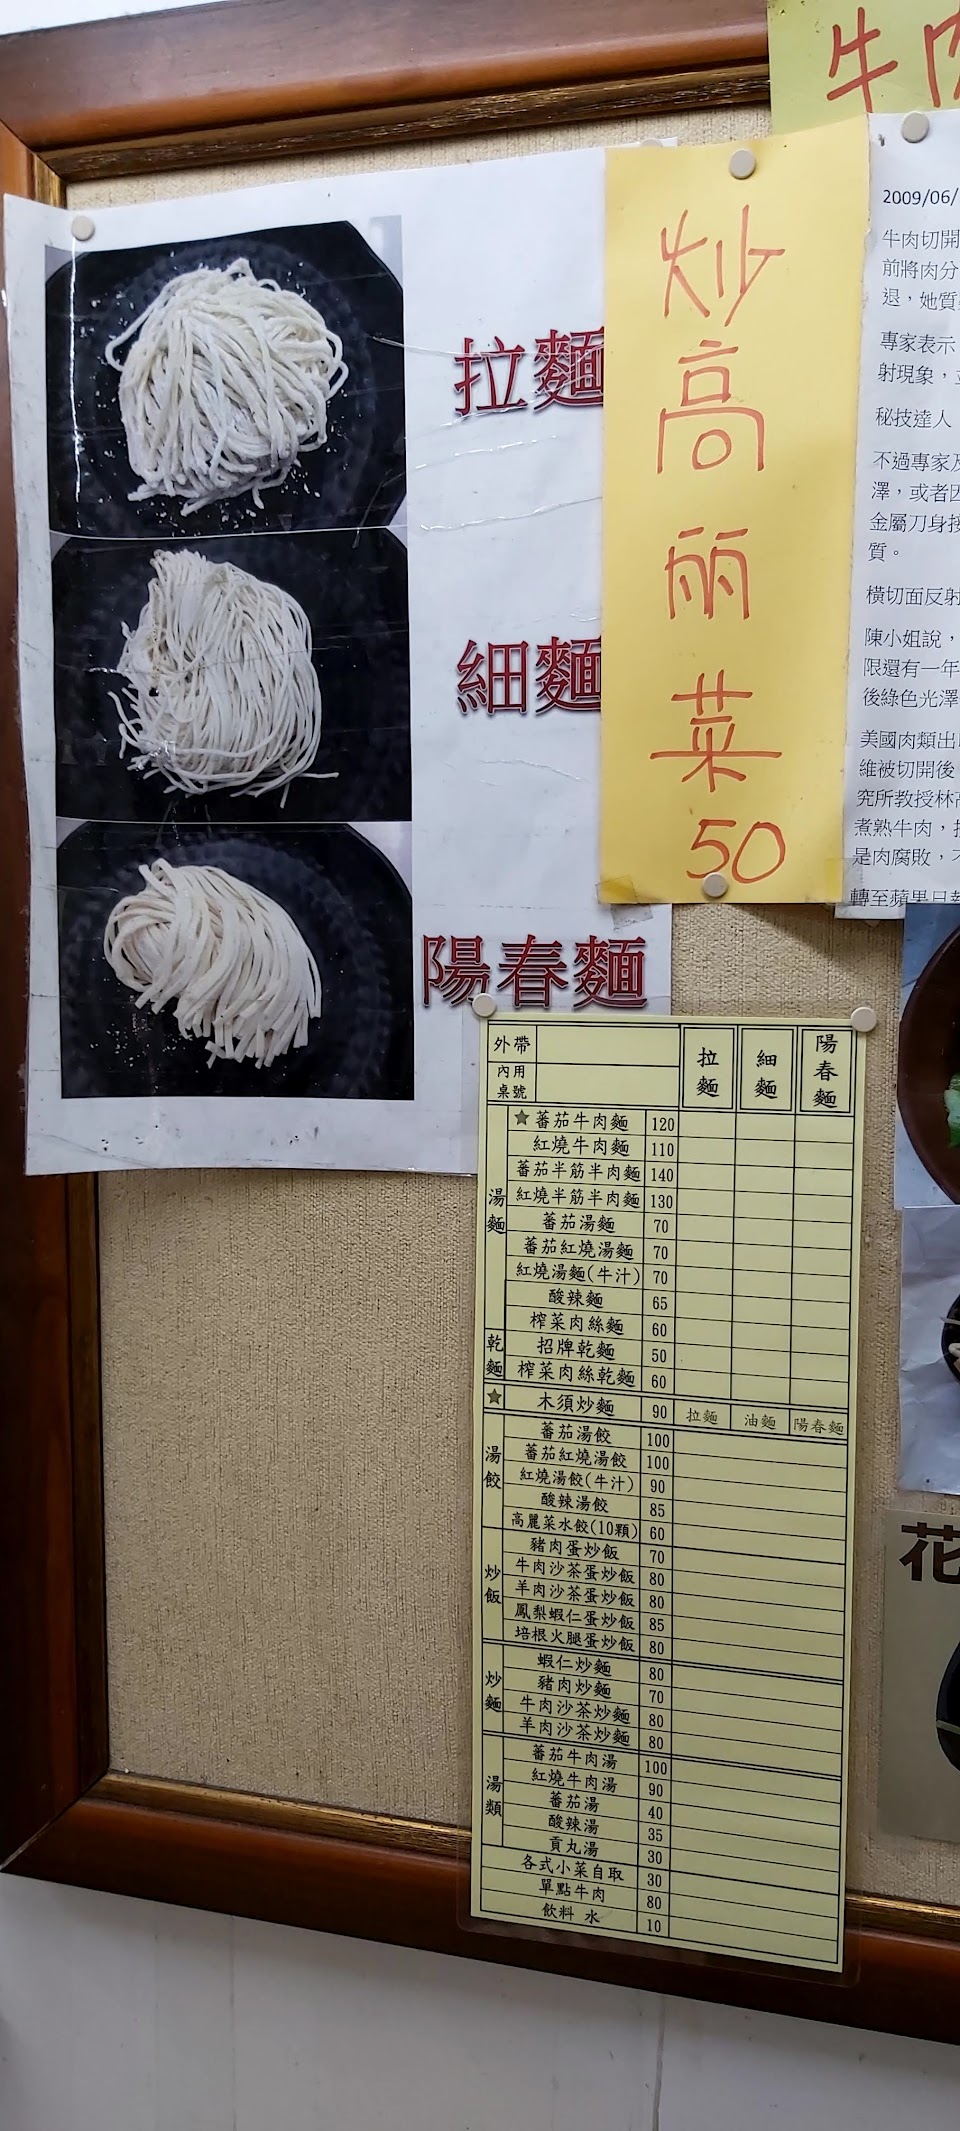 牛肉
拉麵
細麵
陽春麵
炒高丽菜50
2009/06/
牛肉切開
前將肉分
退，她質
專家表示
射現象，
秘技達人
不過專家
澤，或者因
金屬刀身接
質。
橫切面反射
陳小姐說，
限還有一年
後綠色光澤
美國肉類出
維被切開後
究所教授林
煮熟牛肉，
是肉腐敗，
轉至蘋果日報
外帶 拉麵 細麵 陽春麵
內用桌號
湯麵
★番茄牛肉麵 120
紅燒牛肉麵 110
蕃茄半筋半肉麵 140
紅燒半筋半肉麵 130
蕃茄湯麵 70
蕃茄紅燒湯麵 70
紅燒湯麵(牛汁) 70
酸辣麵 65
榨菜肉絲麵 60
乾麵
招牌乾麵 50
榨菜肉絲乾麵 60
★ 木須炒麵 90 拉麵 油麵 陽春麵
湯餃
蕃茄湯餃 100
蕃茄紅燒湯餃 100
紅燒湯餃(牛汁) 90
酸辣湯餃 85
高麗菜水餃(10顆) 60
炒飯
豬肉蛋炒飯 70
牛肉沙茶蛋炒飯 80
羊肉沙茶蛋炒飯 80
鳳梨蝦仁蛋炒飯 85
培根火腿蛋炒飯 80
炒麵
蝦仁炒麵 80
豬肉炒麵 70
牛肉沙茶炒麵 80
羊肉沙茶炒麵 80
湯類
蕃茄牛肉湯 100
紅燒牛肉湯 90
蕃茄湯 40
酸辣湯 35
貢丸湯 30
各式小菜自取 30
單點牛肉 80
飲料 水 10
花